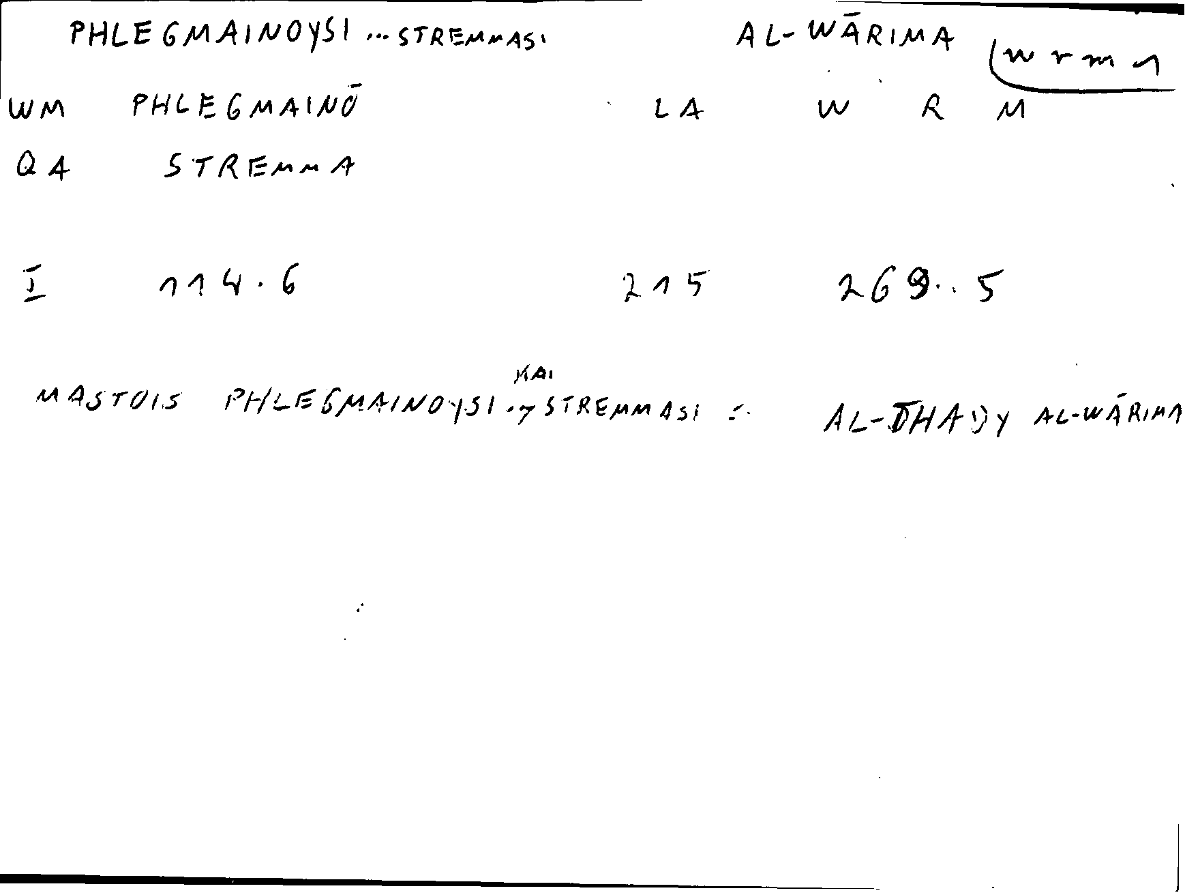 PHLEGMAINOYSI ... STREMMASI AL-WĀRIMA wrm1
WM PHLEGMAINŌ LA W R M
QA STREMMA
I 114.6 215 269..5
KAI
MASTOIS PHLEGMAINOYSI .7 STREMMASI = AL-THADY AL-WĀRIMA